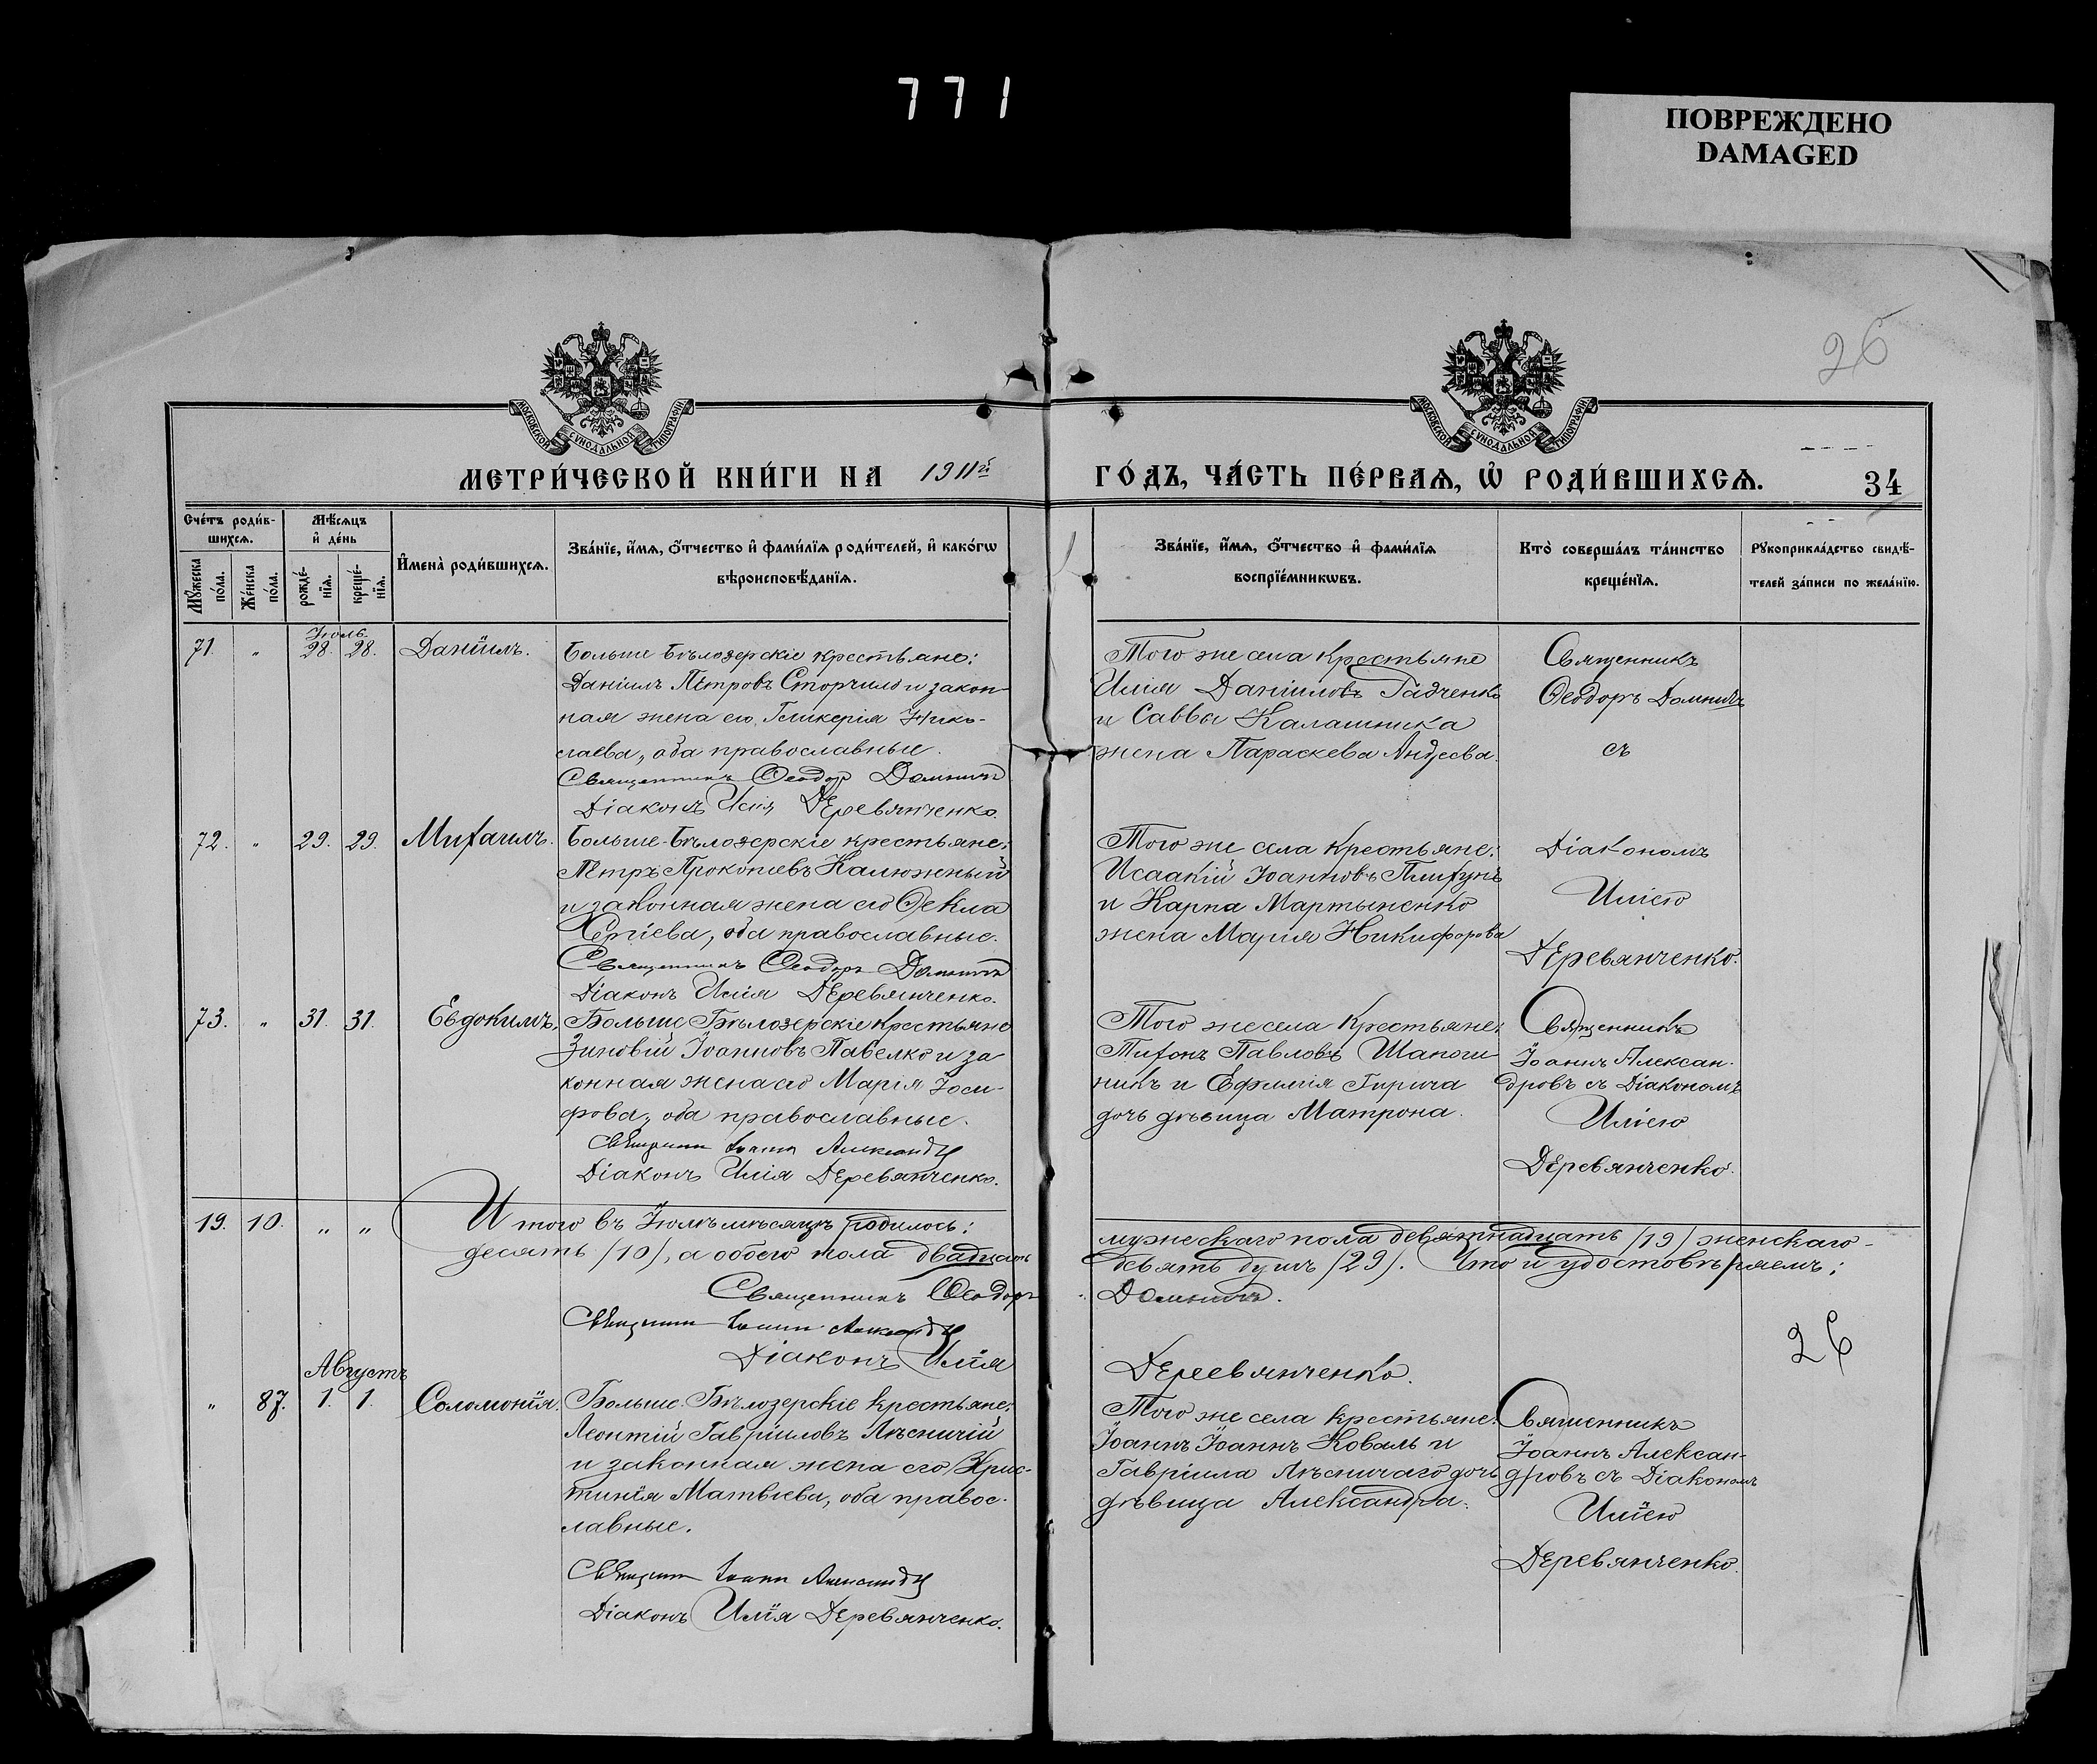 771
ПОВРЕЖДЕНО
DAMAGED
26
МОСКОВСКОЙ СѴНОДАЛЬНОЙ ТИПОГРАФІИ
МОСКОВСКОЙ СѴНОДАЛЬНОЙ ТИПОГРАФІИ
МЕТРИ́ЧЕСКОЙ КНИ́ГИ НА 1911й
ГО́ДЪ, ЧА́СТЬ ПЕ́РВАѦ, Ѽ РОДИ́ВШИХСѦ.
34
Сче́тъ роди́в-
шихсѧ.
Мѣ́сѧцъ
и҆ де́нь
Мꙋ́жеска
по́ла.
Же́нска
по́ла.
рожде́-
нїѧ.
креще́-
нїѧ.
И҆мена̀ роди́вшихсѧ.
Зва́нїе, и҆́мѧ, ѻ҆́тчество и҆ фами́лїѧ роди́телей, и҆ како́гѡ
вѣроисповѣ́данїѧ.
Зва́нїе, и҆́мѧ, ѻ҆́тчество и҆ фами́лїѧ
воспрїе́мникѡвъ.
Кто̀ соверша́лъ та́инство
креще́нїѧ.
Рꙋкоприкла́дство свидѣ́-
телей за́писи по жела́нїю.
Іюль.
71. " 28. 28. Даніилъ.
Больше Бѣлозерскіе крестьяне:
Даніилъ Петровъ Сторчило и закон-
ная жена его Гликерія Нико-
лаева, оба православные.
Священникъ Ѳеодоръ Домничъ
Діаконъ Илія Деревянченко.
Того же села крестьяне
Илія Даніиловъ Гадченко
и Саввы Калашника
жена Параскева Андреева.
Священникъ
Ѳеодоръ Домничъ
съ
72. " 29. 29. Михаилъ.
Больше-Бѣлозерскіе крестьяне:
Петръ Прокопіевъ Калюжный
и законная жена его Ѳекла
Сергіева, оба православные.
Священникъ Ѳеодоръ Домничъ
Діаконъ Илія Деревянченко.
Того же села крестьяне:
Исаакій Іоанновъ Плихунъ
и Карпа Мартыненко
жена Марія Никифорова
Діакономъ
Иліею
Деревянченко.
73. " 31. 31. Евдокимъ.
Больше Бѣлозерскіе крестьяне
Зиновій Іоанновъ Павелко и за
конная жена его Марія Іоси-
фова, оба православные.
Священникъ Іоаннъ Александр
Діаконъ Илія Деревянченко.
Того же села крестьяне:
Тихонъ Павловъ Шапош
никъ и Ефимія Гирича
дочь дѣвица Матрона.
Священникъ
Іоаннъ Алексан-
дровъ съ Діакономъ
Иліею
Деревянченко.
19. 10. " "
Итого въ Іюлѣ мѣсяцѣ родилось:
мужескаго пола девятнадцать /19/ женскаго -
десять /10/, а обоего пола двадцать
девять душъ /29/. Что и удостовѣряемъ:
Священникъ Ѳеодоръ
Домничъ.
Священникъ Іоаннъ Александр
Діаконъ Илія
Деревянченко.
26
Августъ
" 87. 1. 1. Соломонія.
Больше-Бѣлозерскіе крестьяне:
Леонтій Гавріиловъ Лѣсничій
и законная жена его Хрис-
тинія Матвіева, оба правос-
лавные.
Священникъ Іоаннъ Александр
Діаконъ Илія Деревянченко.
Того же села крестьяне:
Іоаннъ Іоаннъ Коваль и
Гавріила Лѣсничаго дочь
дѣвица Александра.
Священникъ
Іоаннъ Алексан-
дровъ съ Діакономъ
Иліею
Деревянченко.